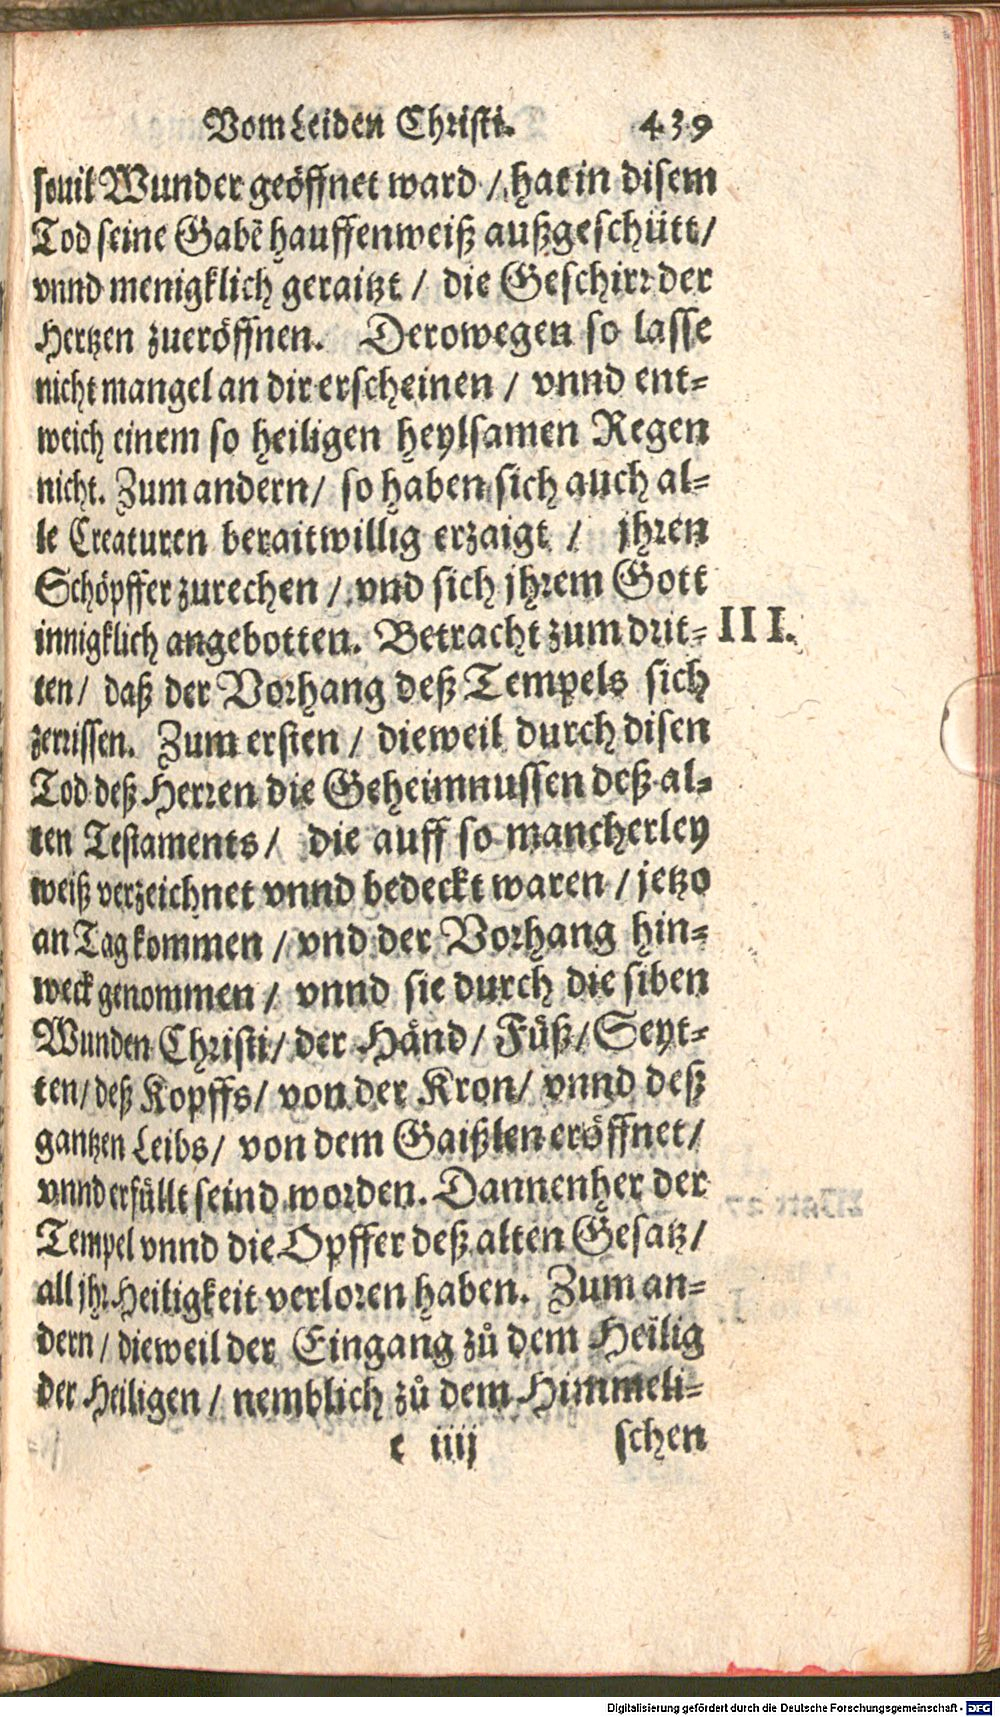 Vom Leiden Christi. 439
souil Wunder geöffnet ward / hat in disem
Tod seine Gabẽ hauffenweiß außgeschütt /
vnnd menigklich geraitzt / die Geschirr der
Hertzen zueröffnen. Derowegen so lasse
nicht mangel an dir erscheinen / vnnd ent-
weich einem so heiligen heylsamen Regen
nicht. Zum andern / so haben sich auch al-
le Creaturen beraitwillig erzaigt / jhren
Schöpffer zurechen / vnd sich jhrem Gott
innigklich angebotten. Betracht zum drit- III.
ten / daß der Vorhang deß Tempels sich
zerrissen. Zum ersten / dieweil durch disen
Tod deß Herren die Geheimnussen deß al-
ten Testaments / die auff so mancherley
weiß verzeichnet vnnd bedeckt waren / jetzo
an Tag kommen / vnd der Vorhang hin-
weck genommen / vnnd sie durch die siben
Wunden Christi / der Händ / Füß / Seyt-
ten / deß Kopffs / von der Kron / vnnd deß
gantzen Leibs / von dem Gaißlen eröffnet /
vnnd erfüllt seind worden. Dannenher der
Tempel vnnd die Opffer deß alten Gesatz /
all jhr Heiligkeit verloren haben. Zum an-
dern / dieweil der Eingang zů dem Heilig
der Heiligen / nemblich zů dem Himmeli-
e iiij schen
Digitalisierung gefördert durch die Deutsche Forschungsgemeinschaft - DFG